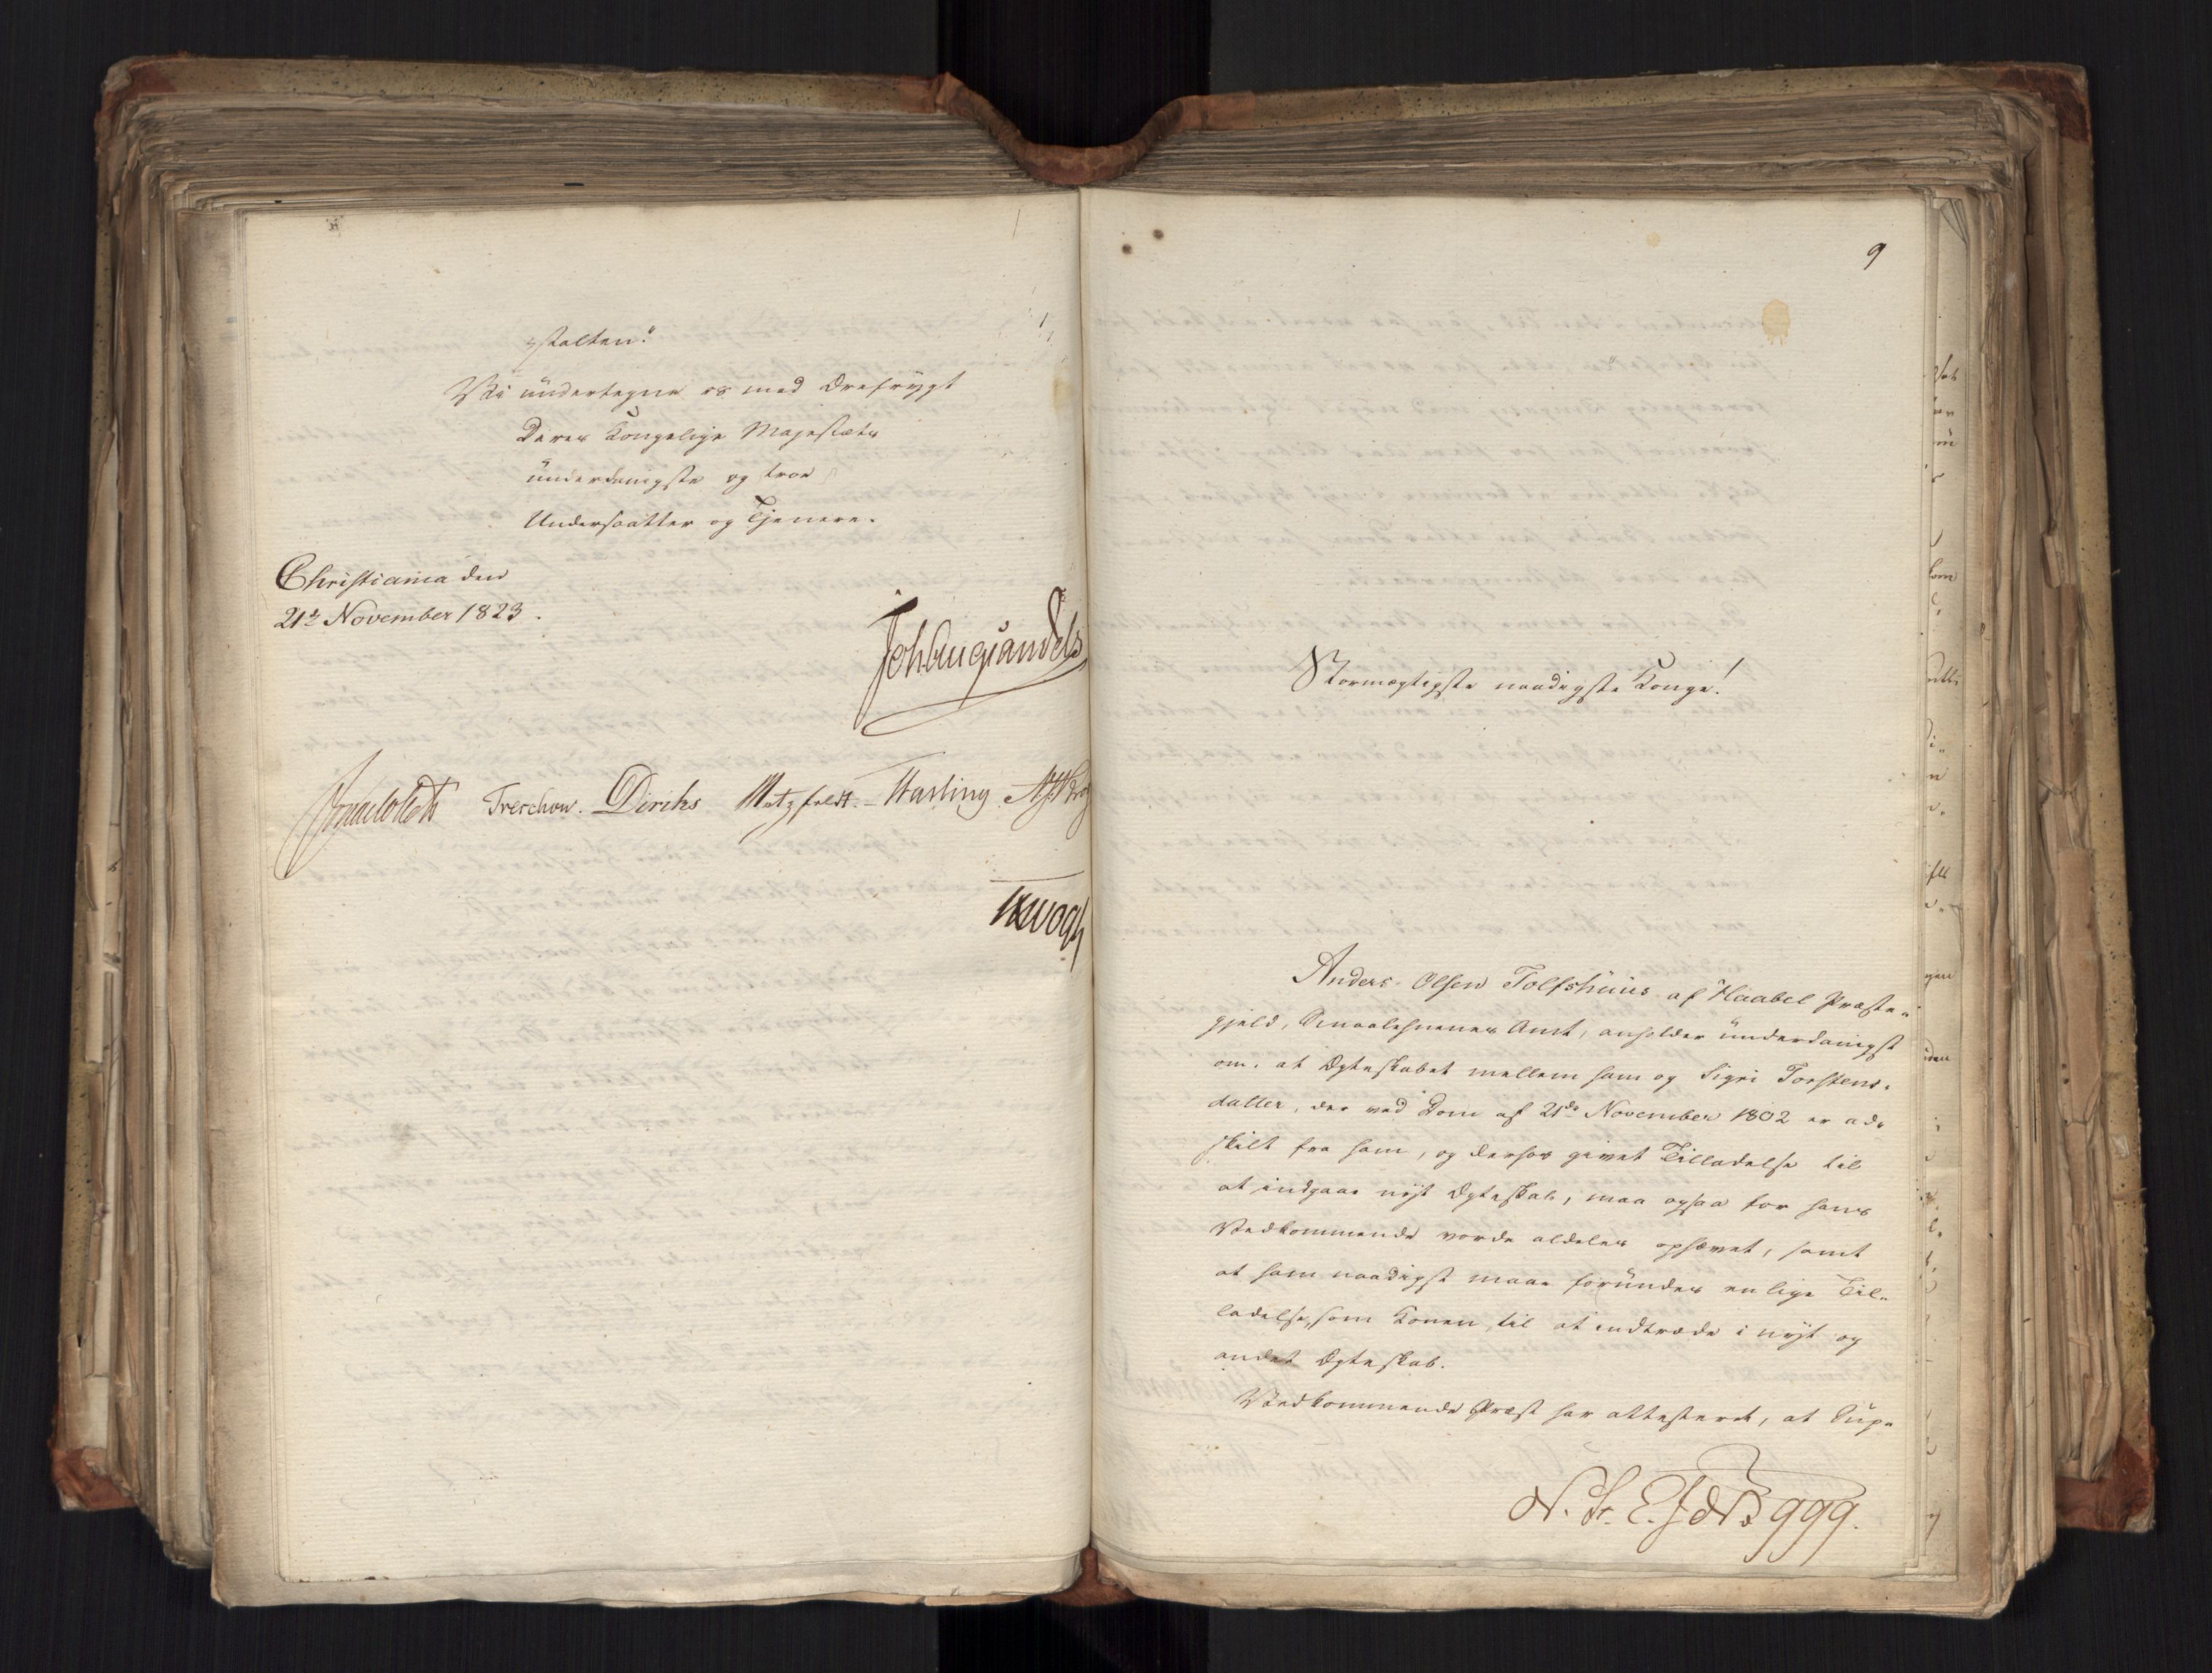 stalten."
Vi undertegne os med Ærefrygt
Deres Kongelige Majestæts
underdanigste og troe
Undersaatter og Tjenere.
Christiania den
21de November 1823.
Joh Aug Sandels
Treschow. Diriks Motzfeldt. Fasting
9
Stormægtigste naadigste Konge!
Anders Olsen Tolfshuus af Haabel Præste-
gjeld, Smaalehnenes Amt, anholder underdanigst
om, at Ægteskabet mellem ham og Sigri Torstens-
datter, der ved Dom af 21de November 1802 er ad-
skilt fra ham, og derhos givet Tilladelse til
at indgaae nyt Ægteskab, maa ogsaa for hans
Vedkommende vorde aldeles ophævet, samt
at ham naadigst maae forundes en lige Til-
ladelse, som Konen, til at indtræde i nyt og
andet Ægteskab.
Vedkommende Præst har attesteret, at Sup-
999.